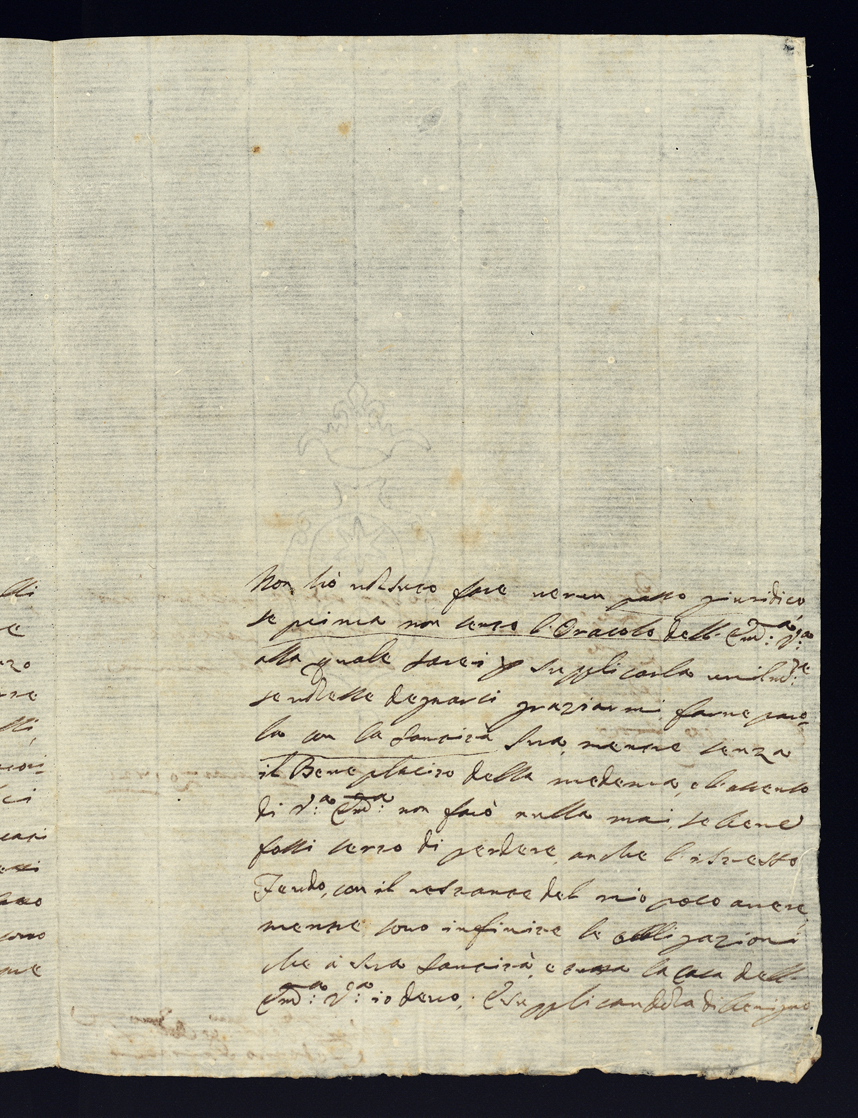 Non hò voluto fare verun passo giuridico,
se prima non sento l'Oracolo dell'Em.ª V.ª
alla quale farei supplicarla umilm.te
se volesse degnarsi graziarmi farne paro-
la con la Santità Sua, mentre senza
il Beneplacito della medema, e l'assenso
di V.ª Em.ª non farò nulla mai, sebene
fossi certo di perdere, anche l'istesso
Feudo, con il restante del mio poco avere,
mentre sono infinite le obbligazioni
che à Sua Santità, e tutta la Casa dell'
Em.ª V.ª io devo; Supplicandola di benigno